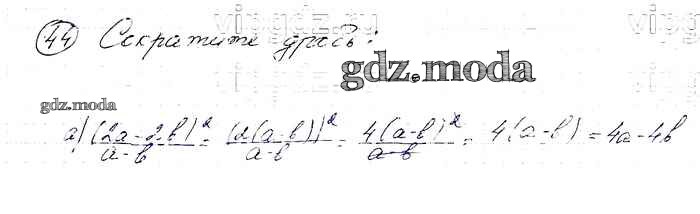 vipgdz.ru vipg
44 Сократите дробь:
gdz.moda
gdz.moda
а) (2a-2b)²/a-b = (2(a-b))²/a-b = 4(a-b)²/a-b = 4(a-b) = 4a-4b